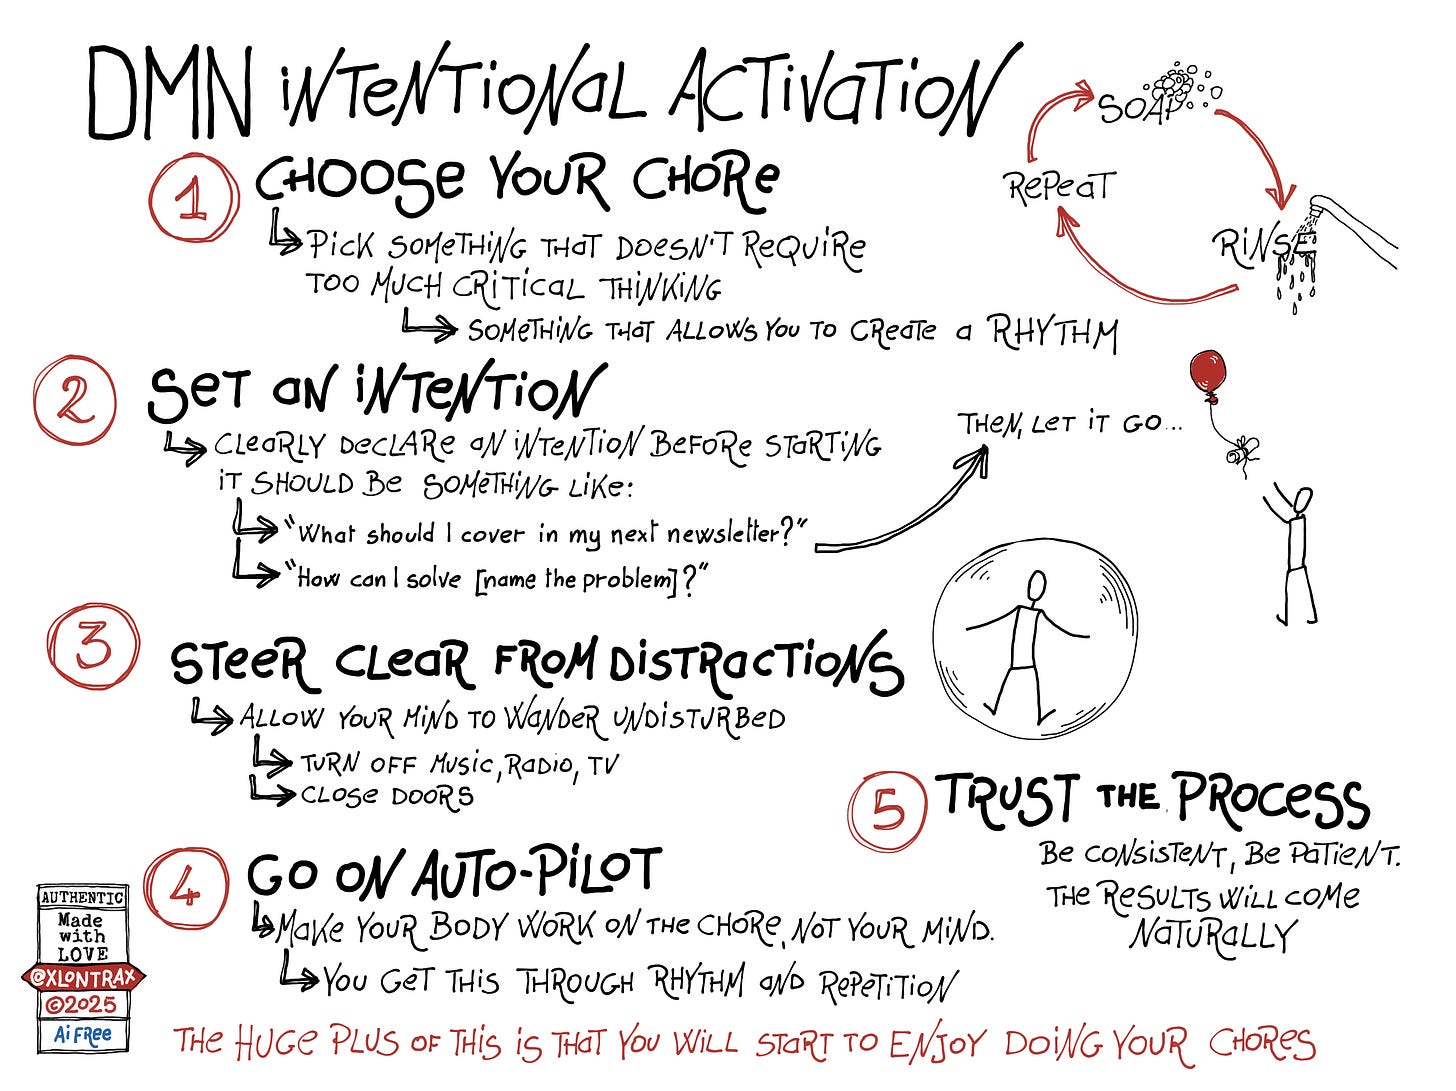 DMN INTENTIONAL ACTIVATION
1 CHOOSE YOUR CHORE
PICK SOMETHING THAT DOESN'T REQUIRE
TOO MUCH CRITICAL THINKING
SOMETHING THAT ALLOWS YOU TO CREATE A RHYTHM
SOAP
RINSE
REPEAT
2 SET AN INTENTION
CLEARLY DECLARE AN INTENTION BEFORE STARTING
IT SHOULD BE SOMETHING LIKE:
"What should I cover in my next newsletter?"
"How can I solve [name the problem]?"
THEN, LET IT GO...
3 STEER CLEAR FROM DISTRACTIONS
ALLOW YOUR MIND TO WANDER UNDISTURBED
TURN OFF MUSIC, RADIO, TV
CLOSE DOORS
4 GO ON AUTO-PILOT
MAKE YOUR BODY WORK ON THE CHORE, NOT YOUR MIND.
YOU GET THIS THROUGH RHYTHM AND REPETITION
5 TRUST THE PROCESS
BE CONSISTENT, BE PATIENT.
THE RESULTS WILL COME
NATURALLY
THE HUGE PLUS OF THIS IS THAT YOU WILL START TO ENJOY DOING YOUR CHORES
AUTHENTIC
Made
with
LOVE
@XLONTRAX
©2025
Ai FREE